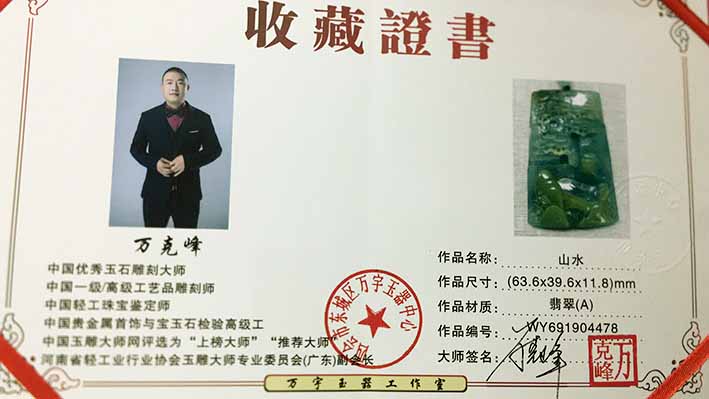 收藏證書
万克峰
中国优秀玉石雕刻大师
中国一级/高级工艺品雕刻师
中国轻工珠宝鉴定师
中国贵金属首饰与宝玉石检验高级工
中国玉雕大师网评选为“上榜大师”“推荐大师”
·河南省轻工业行业协会玉雕大师专业委员会(广东)副会长
四会市东城区万宇玉器中心
作品名称: 山水
作品尺寸: (63.6x39.6x11.8)mm
作品材质: 翡翠(A)
作品编号: WY691904478
大师签名:
万克峰
万宇玉器工作室